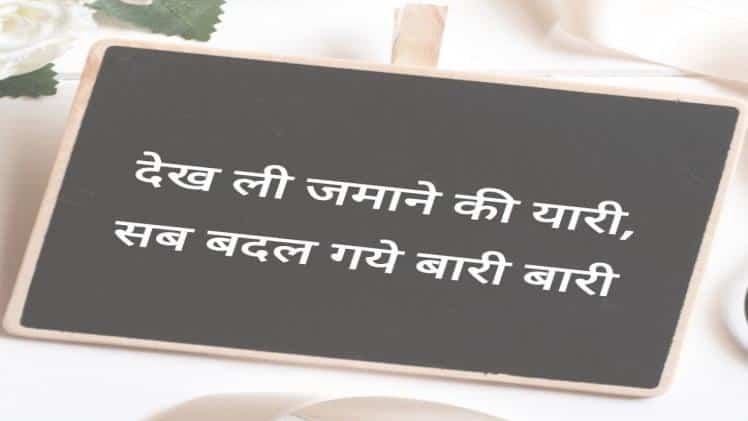 देख ली जमाने की यारी,
सब बदल गये बारी बारी